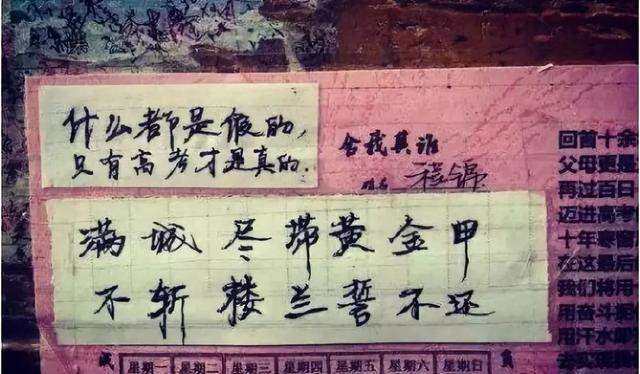 什么都是假的，
只有高考才是真的.
舍我其谁
姓名 程锦
满城尽带黄金甲
不斩楼兰誓不还
回首十余
父母更是
再过百日
迈进高考
十年寒窗
在这最后
我们将用
用奋斗
用汗水
去实现
星期一 星期二 星期三 星期四 星期五 星期六 星期日